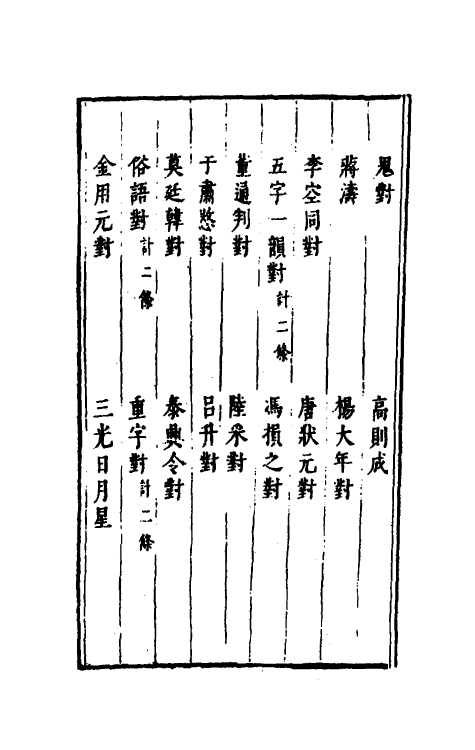 鬼對　高則成
蔣濤　楊大年對
李空同對　唐狀元對
五字一韻對計二條　馮損之對
董通判對　陸采對
于肅愍對　呂升對
莫廷韓對　泰興令對
俗語對計二條　重字對計二條
金用元對　三光日月星